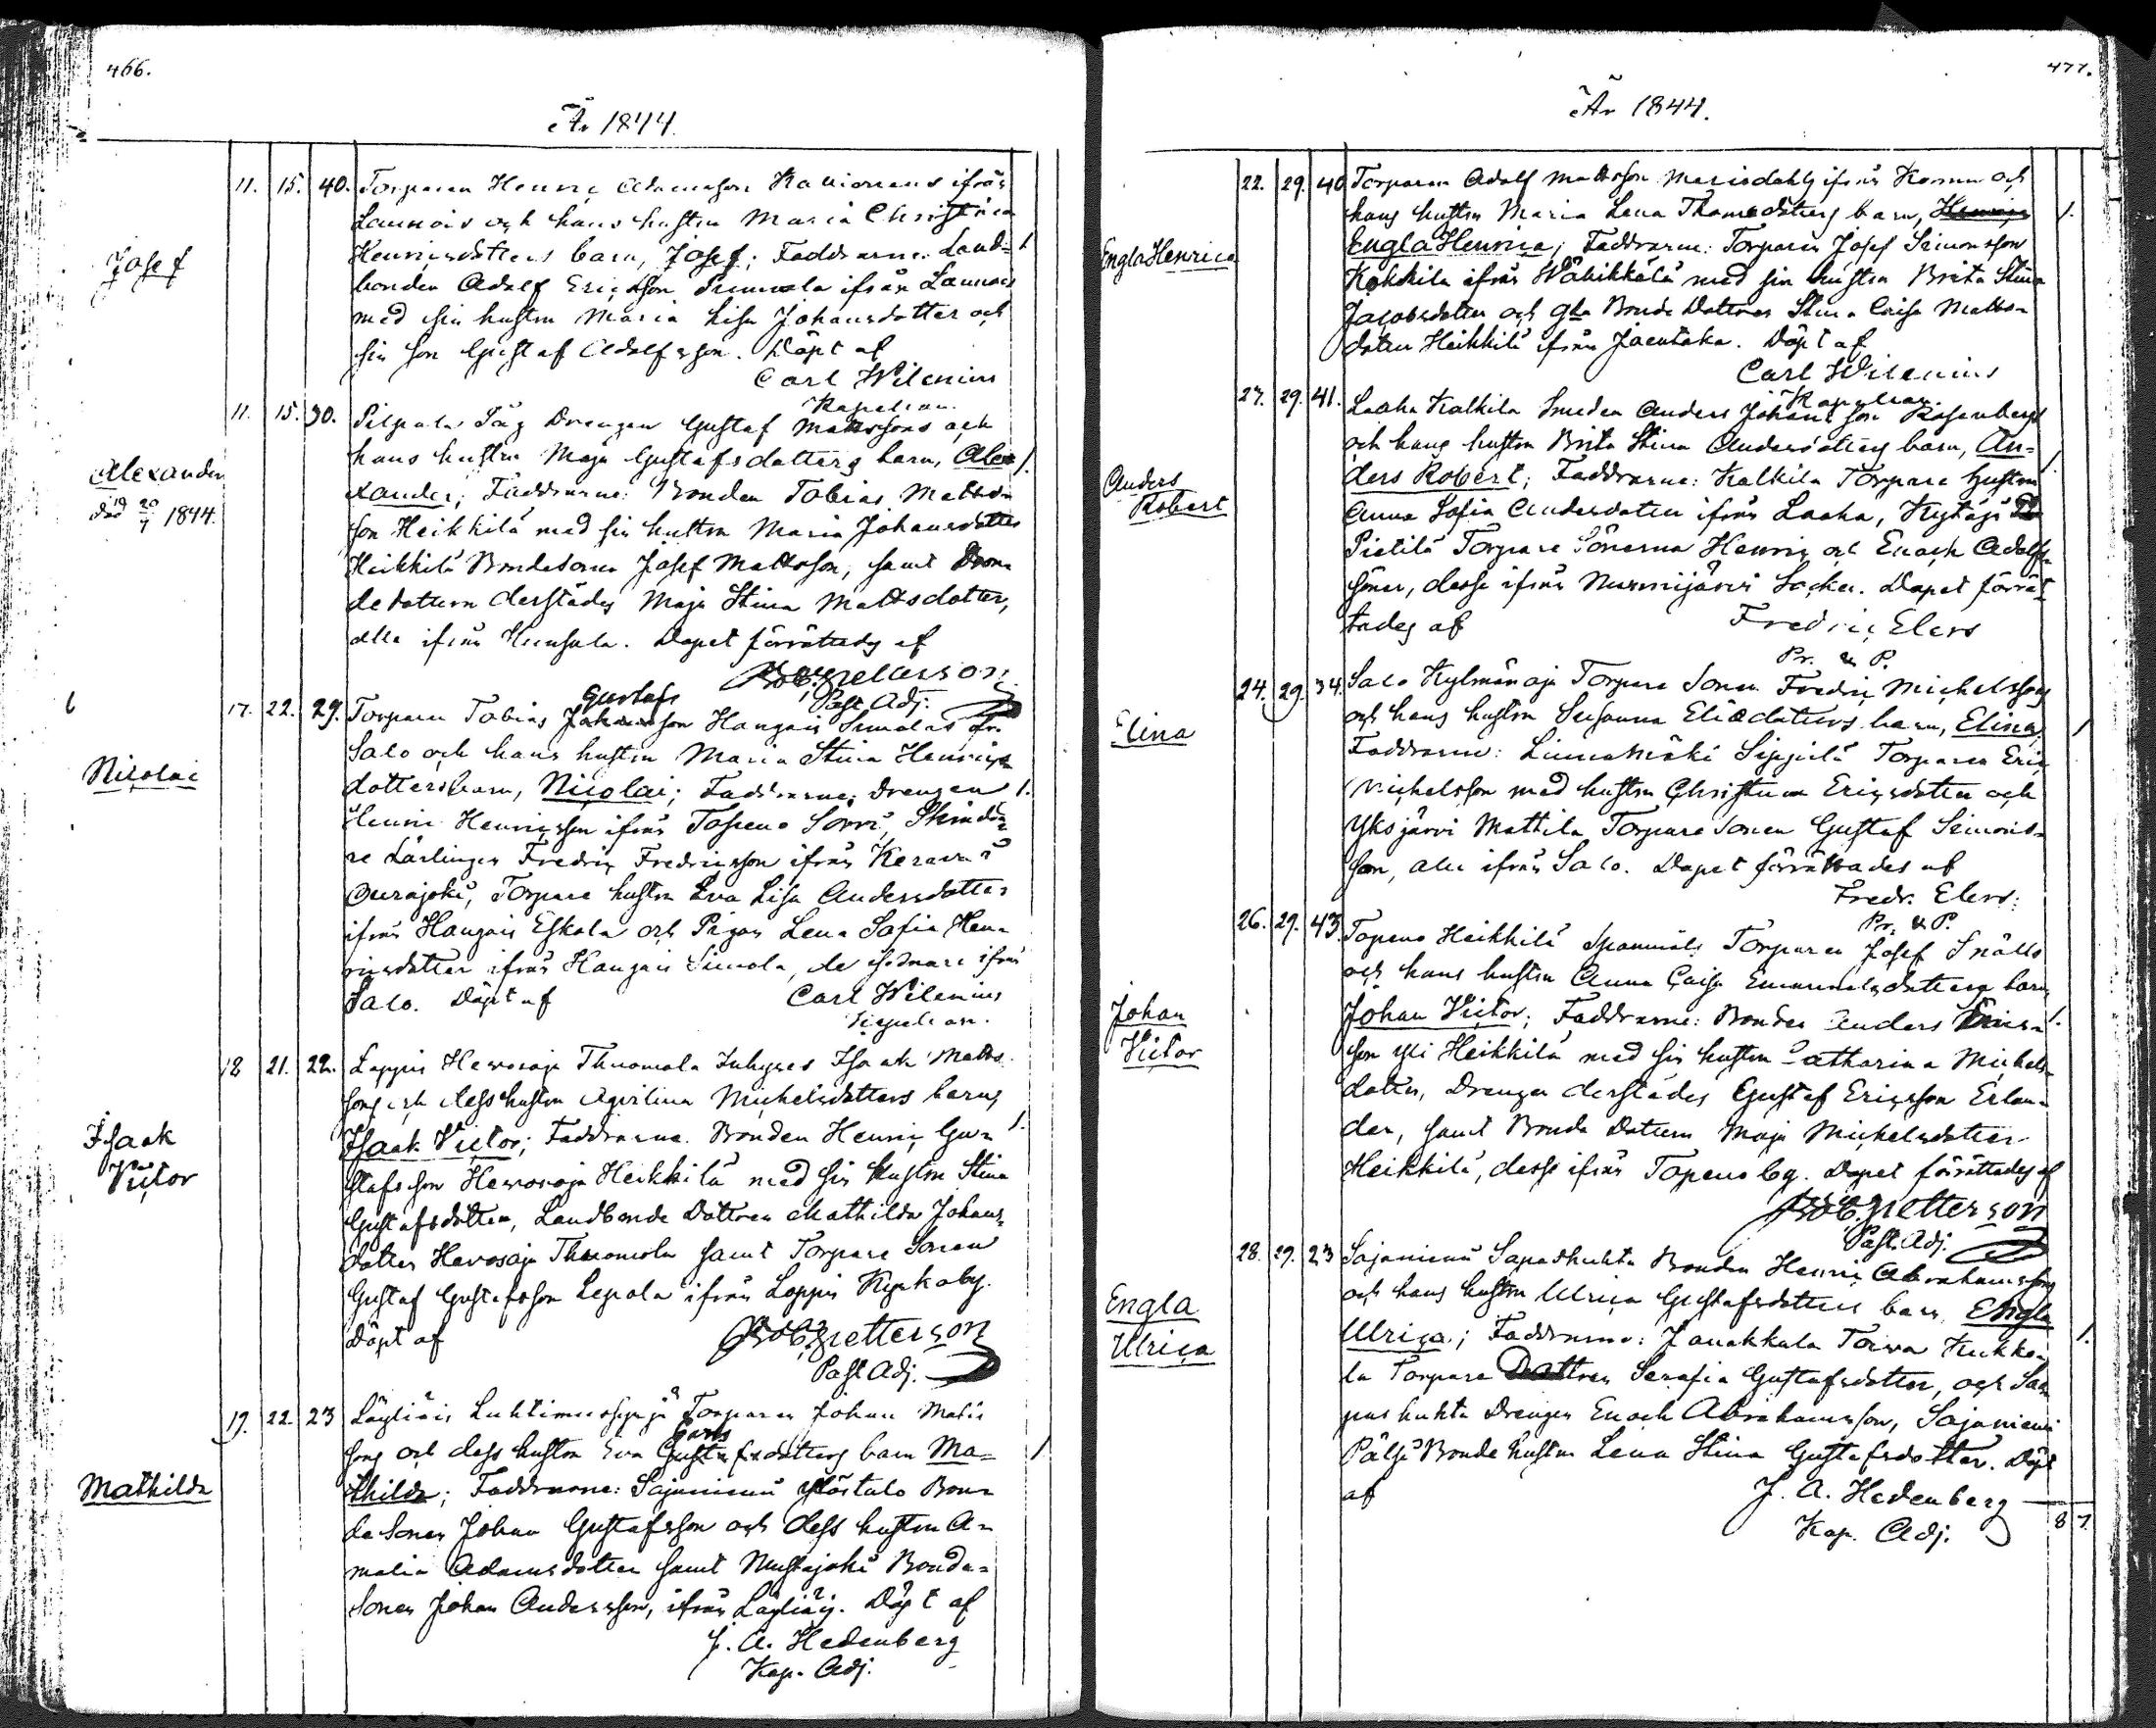 466.
År 1844.
Josef
11. 15. 40. Torparen Henric Adamsson Kavionens ifrån
Launois och hans hustru Maria Christina
Henricsdotters barn, Josef; Faddrarne: Land- 1
bonden Adolf Ericsson Simola ifrån Launois
med sin hustru Maria Lisa Johansdotter och
sin son Gustaf Adolfsson. Döpt af
Carl Wilenius
Kapellan.
Alexander
död 20/7 1844.
11. 15. 30. Pilpala Säg Drengen Gustaf Mattssons och
hans hustru Maja Gustafsdotters barn, Ale- 1.
xander; Faddrarne: Bonden Tobias Matts-
son Heikkilä med sin hustru Maria Johansdotter
Heikkilä Bondesonen Josef Mattsson, samt Bon-
dedottern derstädes Maja Stina Mattsdotter,
alla ifrån Hunsala. Dopet förrättades af
Rob. Petterson
Past. Adj.
6
Nicolai
17. 22. 29. Torparen Tobias Gustafsson Hangais Simolas fr.
Salo och hans hustru Maria Stina Henrics-
dotters barn, Nicolai; Faddrarne: Drengen 1.
Henric Henricsson ifrån Topeno Sorri, Skindra-
re Lärlingen Fredric Fredricsson ifrån Kerava
Ourajoki, Torpare hustru Eva Lisa Andersdotter
ifrån Hangais Eskola och Pigan Lena Sofia Hen-
ricsdotter ifrån Hangais Simola, de sednare ifrån
Salo. Döpt af Carl Wilenius
Kapellan.
Isaak
Victor
18 21. 22. Loppis Hevosoja Thuomola Inhyses Isaak Matts-
sons och dess hustru Agrilina Michelsdotters barn,
Isaak Victor; Faddrarne: Bonden Henric Gu- 1.
stafsson Hevosoja Heikkilä med sin hustru Stina
Gustafsdotter, Landbonde Dottren Mathilda Johans-
dotter Hevosoja Thuomola samt Torpare Sonen
Gustaf Gustafsson Lepola ifrån Loppis Kyrkoby.
Döpt af Rob. Petterson
Past. Adj.
Mathilda
19. 22. 23 Läyliäis Luhtimusoja Torparen Johan Matts
sons och dess hustru Eva Carlsdotters barn Ma- 1
thilda; Faddrarne: Sajaniemi Ylöstalo Bon-
de Sonen Johan Gustafsson och dess hustru A-
malia Adamsdotter samt Mustajoki Bonde-
Sonen Johan Andersson, ifrån Läyliäis. Döpt af
J. A. Hedenberg
Kap. Adj.
477.
År 1844.
Engla Henrica
22. 29. 40 Torparen Adolf Mattsson Mariedahls ifrån Kormu och
hans hustru Maria Lena Thomasdotters barn, 1.
Engla Henrica; Faddrarne: Torparen Josef Simonsson
Kokkila ifrån Wähikkälä med sin hustru Brita Stina
Jacobsdotter och gla Bonde Dottren Stina Caisa Matts-
dotter Heikkilä ifrån Jaentaka. Döpt af
Carl Wilenius
Kapellan.
Anders
Robert
27. 29. 41. Laaka Kalkila Smeden Anders Johansson Rosenbergs
och hans hustru Brita Stina Andersdotters barn, An-
ders Robert; Faddrarne: Kalkila Torpare hustru 1
Anna Sofia Andersdotter ifrån Laaka, Kytäjä
Pietilä Torpare Sönerna Henric och Enoch Adolfs-
söner, desse ifrån Nurmijärvi Socken. Dopet förrät-
tades af Fredric Elers
Pr. & P.
Elina
24. 29. 34. Salo Kylmänoja Torpare Sonen Fredric Michelssons
och hans hustru Susanna Eliædotters barn, Elina 1
Faddrarne: Linnamäki Sippilä Torparen Eric
Michelsson med hustru Christina Ericsdotter och
Yksjärvi Mattila Torpare Sonen Gustaf Simons-
son, alla ifrån Salo. Dopet förrättades af
Fredr. Elers:
Pr. & P.
Johan
Victor
26. 29. 43. Topeno Heikkilä Spannäls Torparen Josef Snälls
och hans hustru Anna Caisa Emanuelsdotters barn,
Johan Victor; Faddrarne: Bonden Anders Erics- 1.
son Yli Heikkilä med sin hustru Catharina Michels-
dotter, Drengen derstädes Gustaf Ericsson Erlan-
der, samt Bonde Dottern Maja Michelsdotter
Heikkilä, desse ifrån Topeno by. Dopet förrättades af
Rob. Petterson
Past. Adj.
Engla
Ulrica
28. 29. 23 Sajaniemi Sapashuhta Bonden Henric Abrahamssons
och hans hustru Ulrica Gustafsdotters barn Engla
Ulrica; Faddrarne: Janakkala Toiva Kukko- 1.
la Torpare Dottren Serafia Gustafsdotter, och Sa-
pashuhta Drengen Enoch Abrahamsson, Sajaniemi
Pälsi Bonde hustru Lena Stina Gustafsdotter. Döpt
af J. A. Hedenberg
Kap. Adj.
8 7.